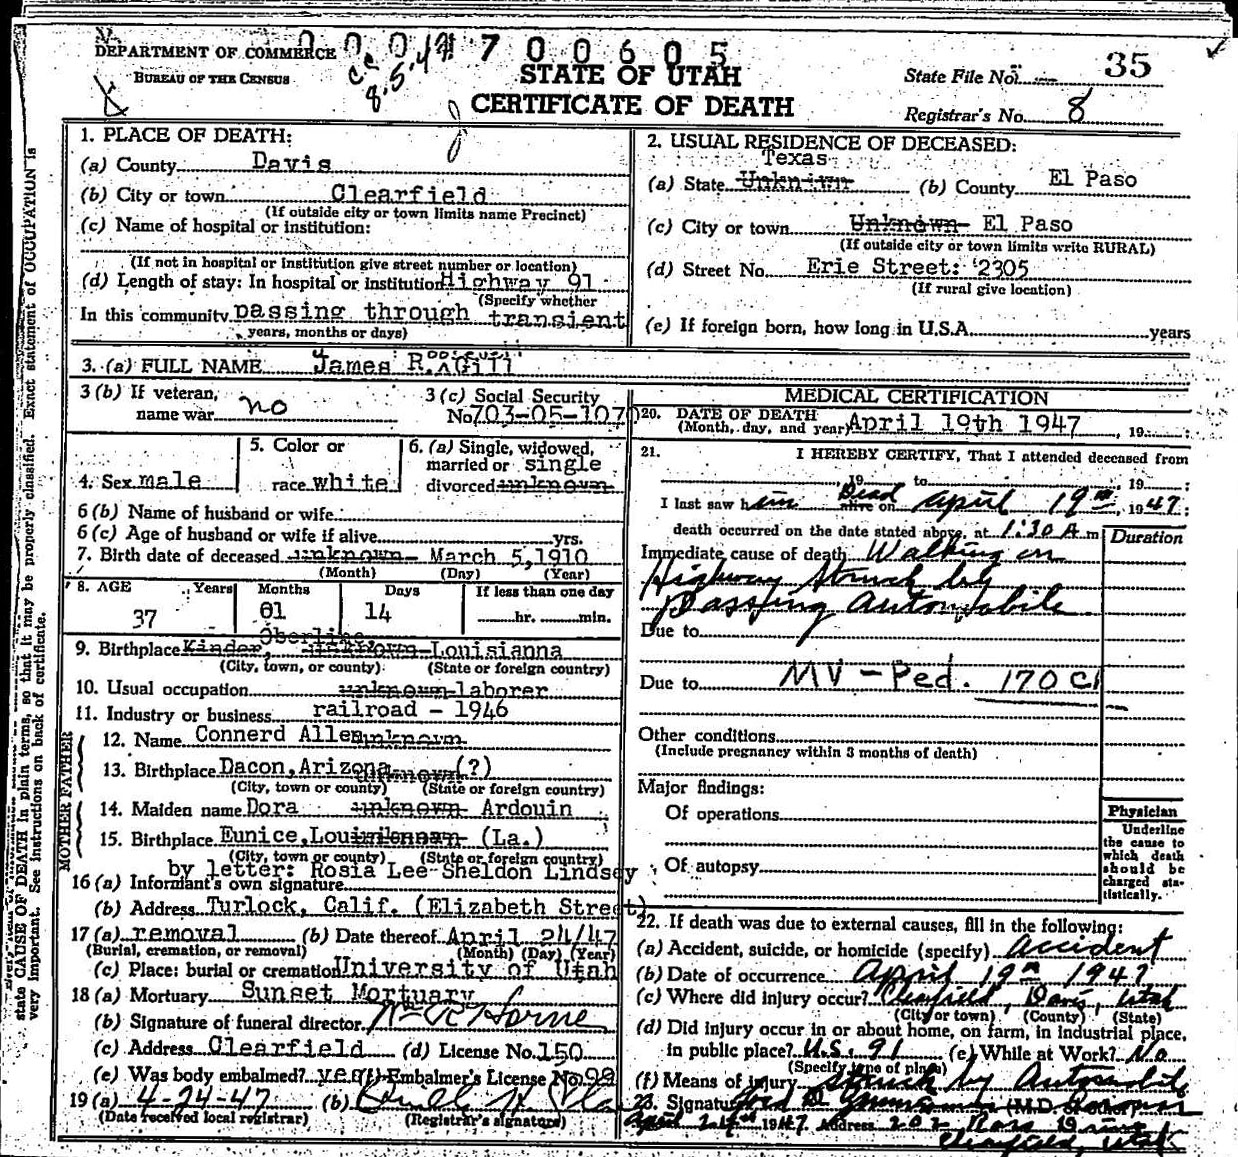 DEPARTMENT OF COMMERCE
BUREAU OF THE CENSUS
700605
STATE OF UTAH
CERTIFICATE OF DEATH
State File No. 35
Registrar's No. 8
1. PLACE OF DEATH:
(a) County Davis
(b) City or town Clearfield
(If outside city or town limits name Precinct)
(c) Name of hospital or institution:
(If not in hospital or institution give street number or location)
(d) Length of stay: In hospital or institution Highway 91
(Specify whether
In this community passing through transient
years, months or days)
2. USUAL RESIDENCE OF DECEASED:
Texas
(a) State Unknown (b) County El Paso
(c) City or town Unknown El Paso
(If outside city or town limits write RURAL)
(d) Street No. Erie Street: 2305
(If rural give location)
(e) If foreign born, how long in U.S.A. years
3. (a) FULL NAME James R. Gill
3 (b) If veteran,
name war no
3 (c) Social Security
No. 703-05-1070
4. Sex male
5. Color or
race white
6. (a) Single, widowed,
married or single
divorced unknown
6 (b) Name of husband or wife
6 (c) Age of husband or wife if alive yrs.
7. Birth date of deceased unknown March 5, 1910
(Month) (Day) (Year)
8. AGE Years Months Days If less than one day
37 01 14 hr. min.
Oberlin,
9. Birthplace Kinder, unknown Louisianna
(City, town, or county) (State or foreign country)
10. Usual occupation unknown laborer
11. Industry or business railroad - 1946
FATHER
12. Name Connerd Allen unknown
13. Birthplace Dacon, Arizona unknown (?)
(City, town or county) (State or foreign country)
MOTHER
14. Maiden name Dora unknown Ardouin
15. Birthplace Eunice, Lou unknown (La.)
(City, town or county) (State or foreign country)
by letter: Rosia Lee Sheldon Lindsey
16 (a) Informant's own signature
(b) Address Turlock, Calif. (Elizabeth Street)
17 (a) removal (b) Date thereof April 24/47
(Burial, cremation, or removal) (Month) (Day) (Year)
(c) Place: burial or cremation University of Utah
18 (a) Mortuary Sunset Mortuary
(b) Signature of funeral director Horne
(c) Address Clearfield (d) License No. 150
(e) Was body embalmed? yes (f) Embalmer's License No. 99
19 (a) 4-24-47 (b)
(Date received local registrar) (Registrar's signature)
MEDICAL CERTIFICATION
20. DATE OF DEATH
(Month, day, and year) April 19th 1947, 19
21. I HEREBY CERTIFY, That I attended deceased from
, 19 to , 19 ;
I last saw him Dead alive on April 19th, 1947;
death occurred on the date stated above, at 1:30 A m
Duration
Immediate cause of death Walking on
Highway Struck by
Passing Automobile
Due to
Due to MV - Ped. 170 C1
Other conditions
(Include pregnancy within 3 months of death)
Major findings:
Of operations
Of autopsy
Physician
Underline
the cause to
which death
should be
charged sta-
tistically.
22. If death was due to external causes, fill in the following:
(a) Accident, suicide, or homicide (specify) Accident
(b) Date of occurrence April 19th 1947
(c) Where did injury occur? Clearfield, Davis, Utah
(City or town) (County) (State)
(d) Did injury occur in or about home, on farm, in industrial place,
in public place? U.S. 91 (e) While at Work? No
(Specify type of place)
(f) Means of injury Struck by Automobile
23. Signature
April 1947. Address 202 Ross Drive
Clearfield, Utah
state CAUSE OF DEATH in plain terms, so that it may be properly classified. Exact statement of OCCUPATION is
very important. See instructions on back of certificate.